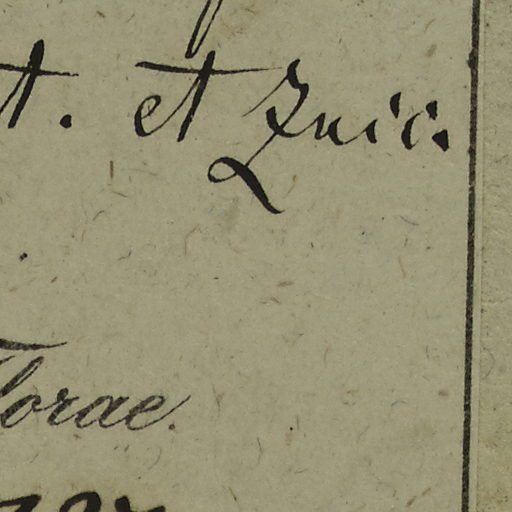 t. et Zucc.
lorae.